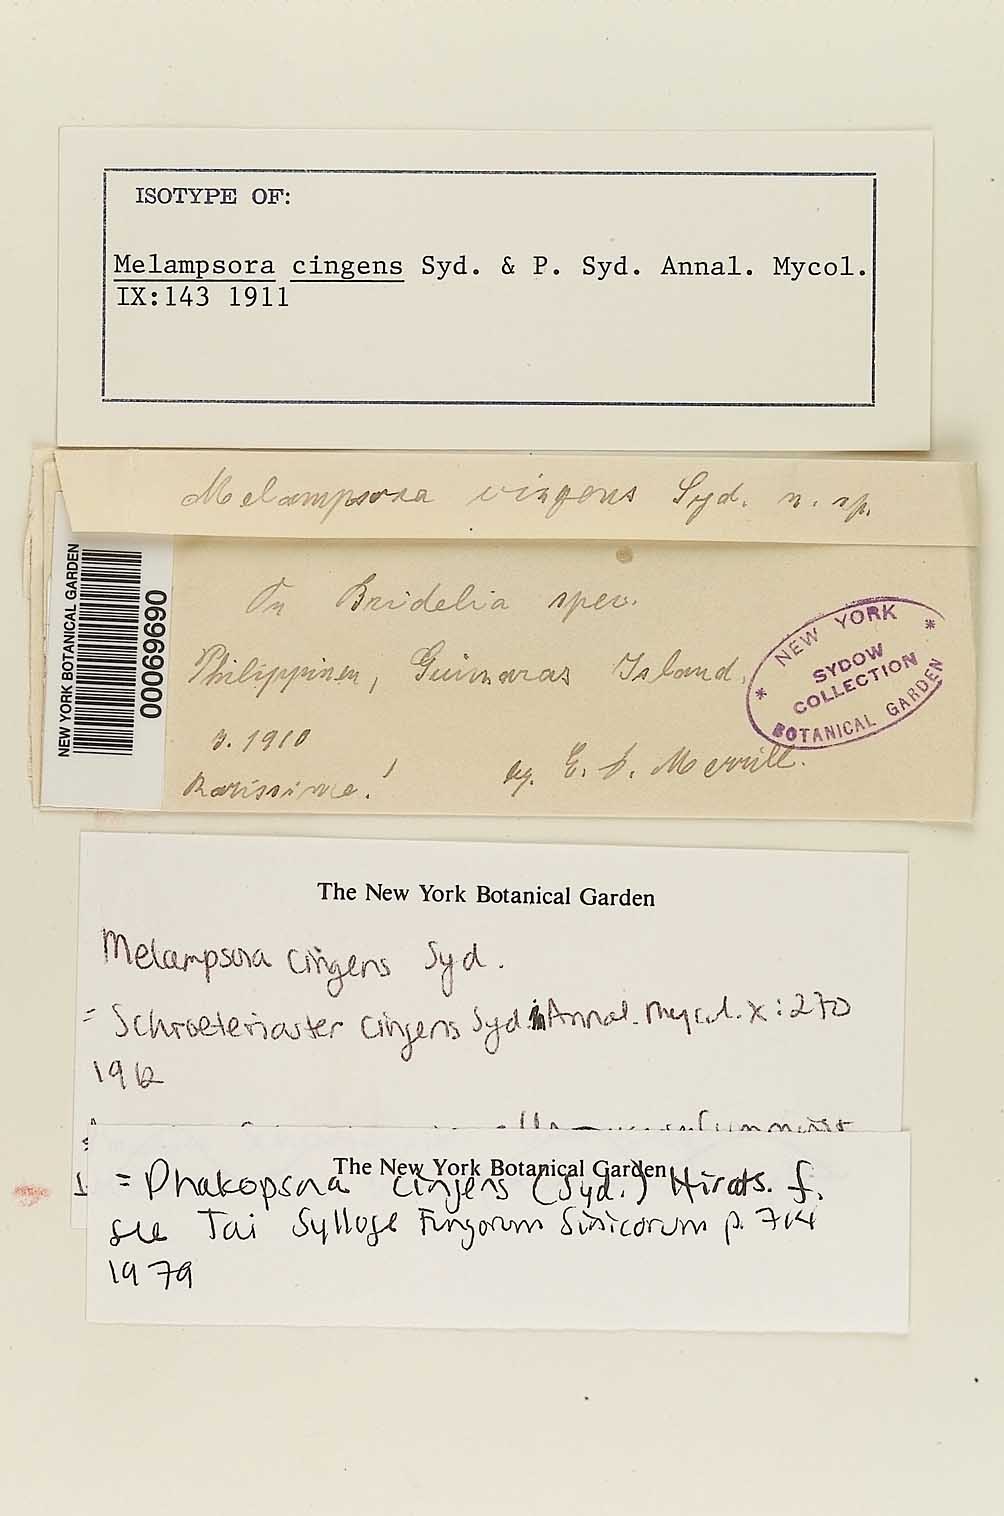 ISOTYPE OF:
Melampsora cingens Syd. & P. Syd. Annal. Mycol.
IX:143 1911
Melampsora cingens Syd. n. sp.
On Bridelia spec.
Philippinen, Guimaras Island.
3. 1910
Rarissime!
lg. E. D. Merrill.
NEW YORK BOTANICAL GARDEN
00069690
NEW YORK
SYDOW
COLLECTION
BOTANICAL GARDEN
The New York Botanical Garden
Melampsora cingens Syd.
= Schroeteriaster cingens Syd. Annal. Mycol. X:270
1912
The New York Botanical Garden
= Phakopsora cingens (Syd.) Hirats. f.
see Tai Sylloge Fungorum Sinicorum p. 714
1979